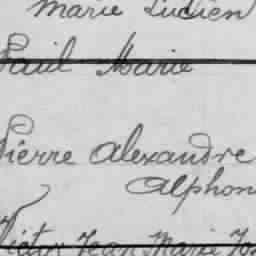 Marie Lucien
Paul Marie
Pierre Alexandre
Alphon
Victor Jean Marie Jos